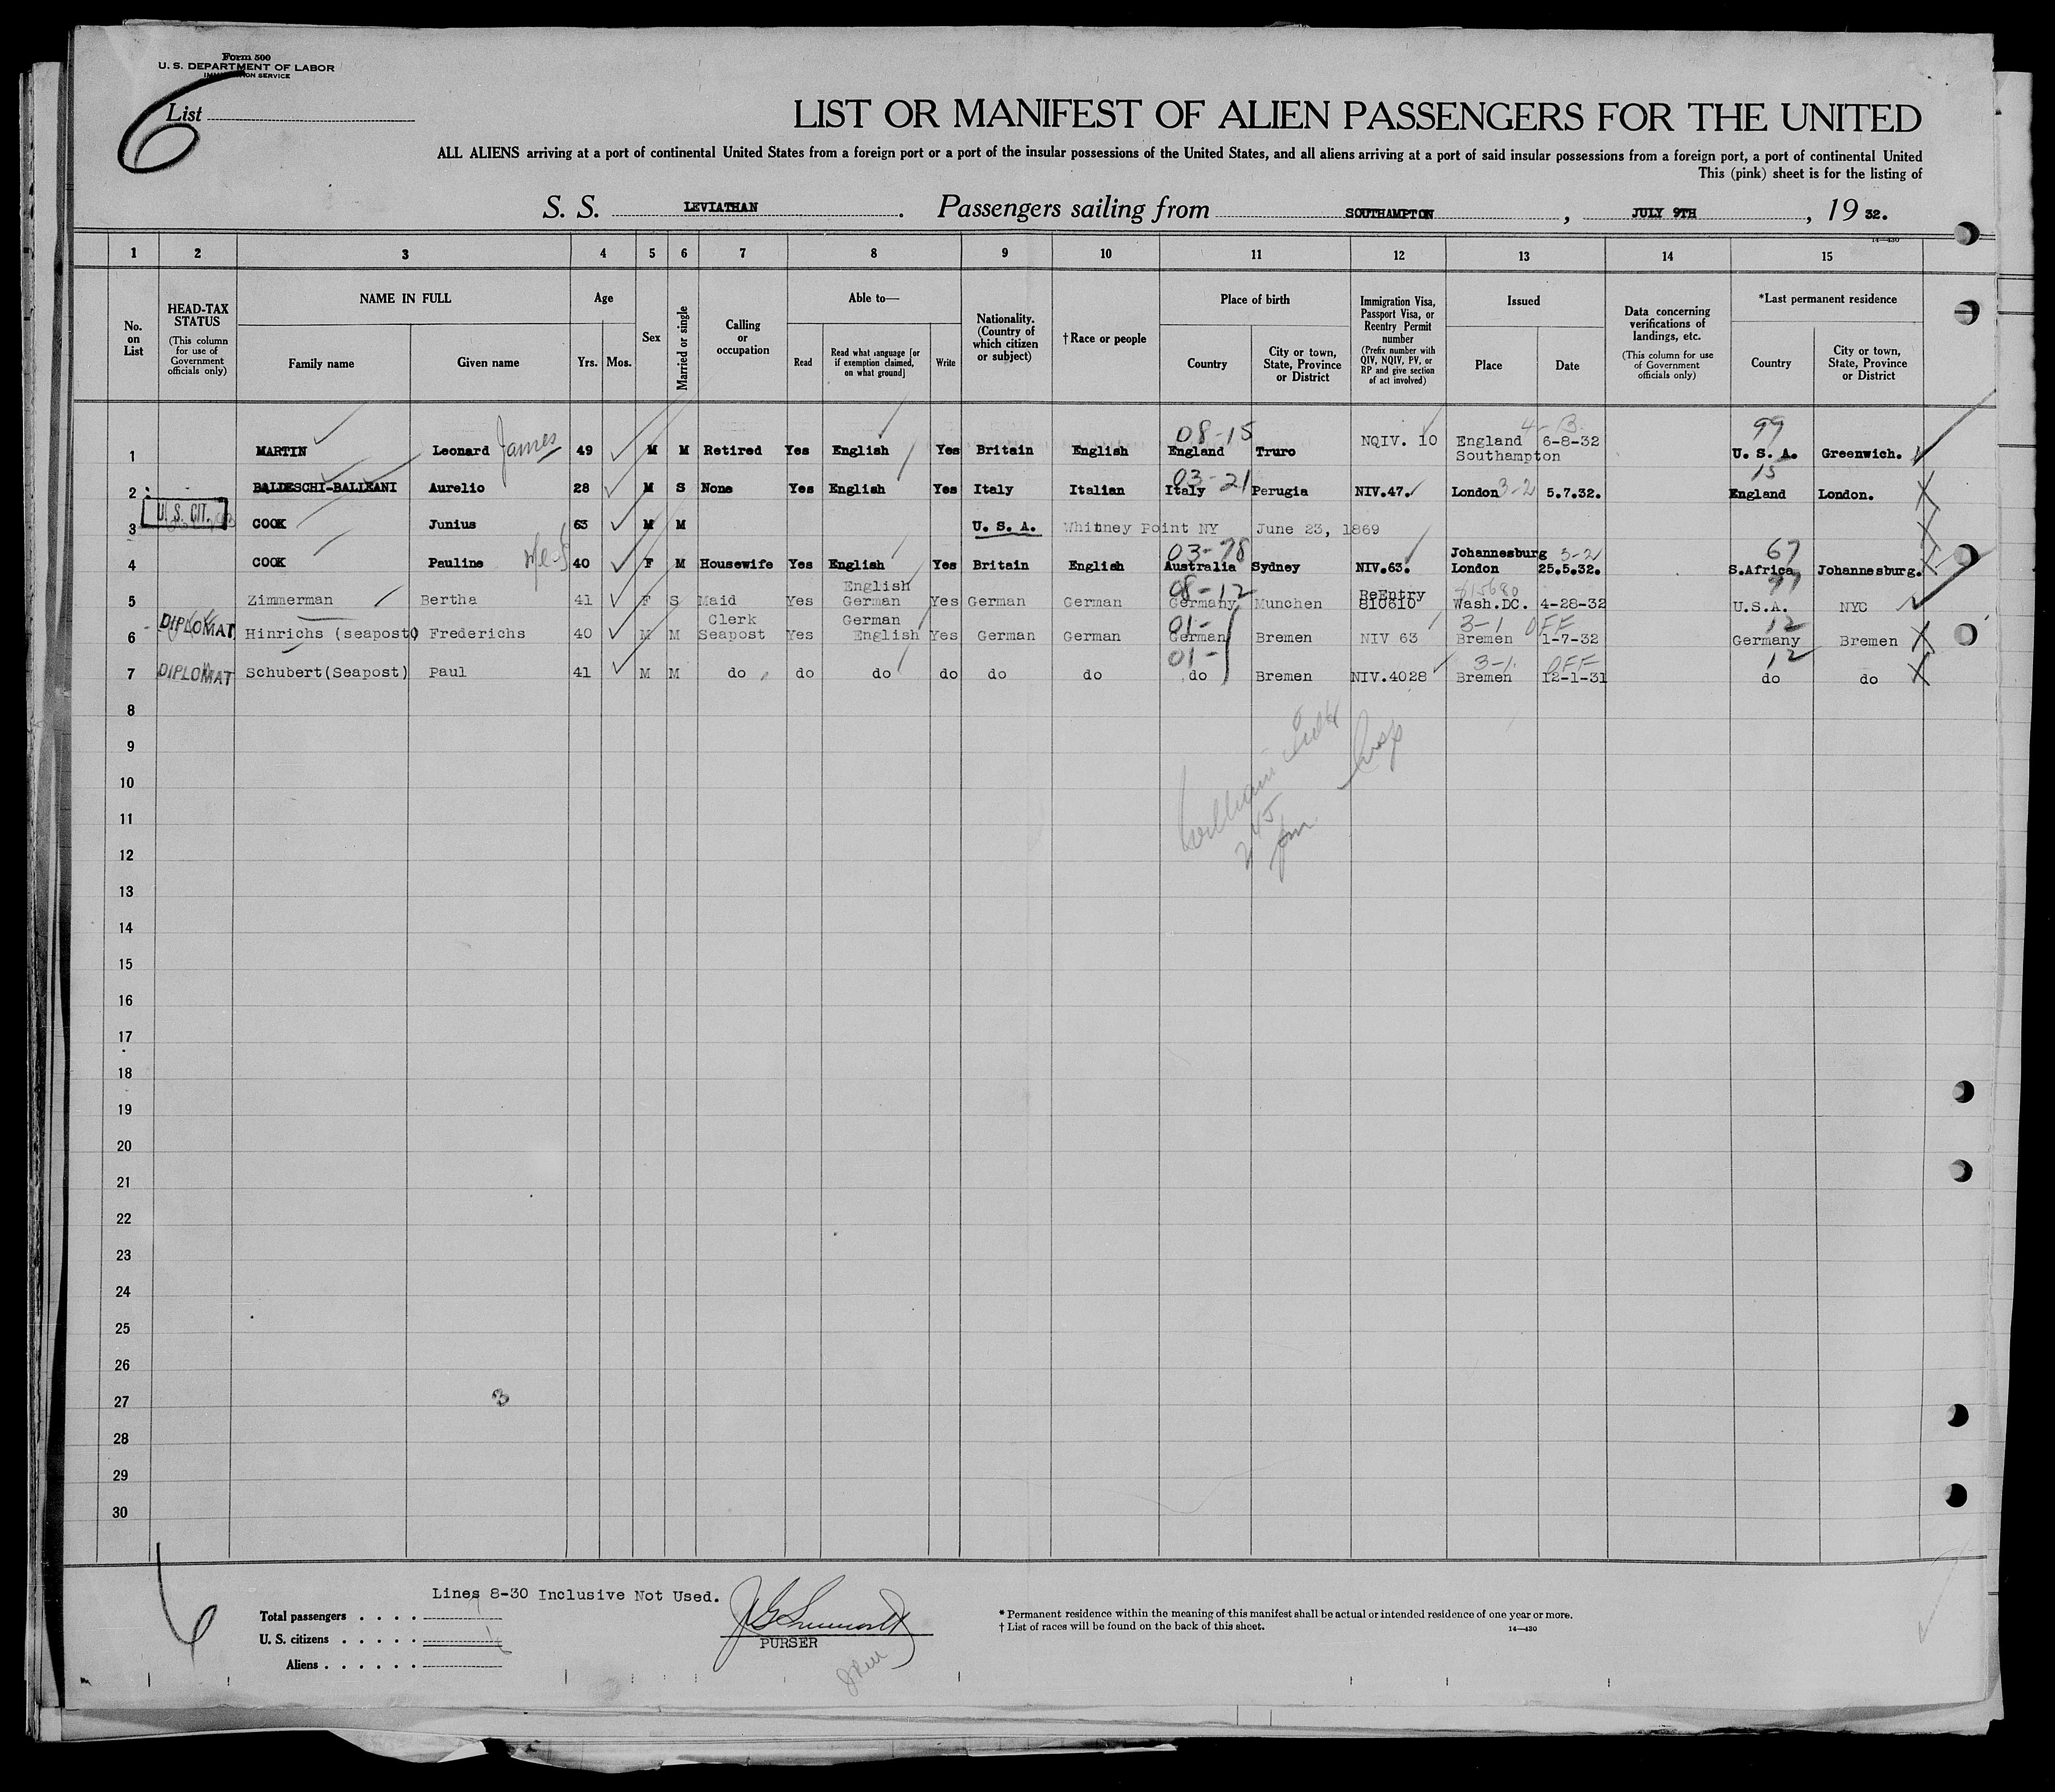 Form 500
U. S. DEPARTMENT OF LABOR
IMMIGRATION SERVICE
6
List
LIST OR MANIFEST OF ALIEN PASSENGERS FOR THE UNITED
ALL ALIENS arriving at a port of continental United States from a foreign port or a port of the insular possessions of the United States, and all aliens arriving at a port of said insular possessions from a foreign port, a port of continental United
This (pink) sheet is for the listing of
S. S. LEVIATHAN. Passengers sailing from SOUTHAMPTON, JULY 9TH, 19 32.
14—430
1 2 3 4 5 6 7 8 9 10 11 12 13 14 15
No. on List
HEAD-TAX STATUS (This column for use of Government officials only)
NAME IN FULL
Family name Given name
Age
Yrs. Mos.
Sex
Married or single
Calling or occupation
Able to—
Read
Read what language [or if exemption claimed, on what ground]
Write
Nationality. (Country of which citizen or subject)
†Race or people
Place of birth
Country
City or town, State, Province or District
Immigration Visa, Passport Visa, or Reentry Permit number (Prefix number with QIV, NQIV, PV, or RP and give section of act involved)
Issued
Place Date
Data concerning verifications of landings, etc. (This column for use of Government officials only)
*Last permanent residence
Country
City or town, State, Province or District
08-15 4-B. 99
1 MARTIN Leonard James 49 M M Retired Yes English Yes Britain English England Truro NQIV. 10 England Southampton 6-8-32 U. S. A. Greenwich.
03-21 3-2 15
2 BALDESCHI-BALLEANI Aurelio 28 M S None Yes English Yes Italy Italian Italy Perugia NIV.47. London 5.7.32. England London.
U. S. CIT.
3 COOK Junius 63 M M U. S. A. Whitney Point NY June 23, 1869
03-78 3-2 67
4 COOK Pauline 40 F M Housewife Yes English Yes Britain English Australia Sydney NIV.63. Johannesburg London 25.5.32. S.Africa Johannesburg.
08-12 99
5 Zimmerman Bertha 41 F S Maid Yes English German Yes German German Germany Munchen ReEntry 810610 Wash.DC. 4-28-32 U.S.A. NYC
01- 3-1 OFF 12
DIPLOMAT
6 Hinrichs (seapost) Frederichs 40 M M Clerk Seapost Yes German English Yes German German German Bremen NIV 63 Bremen 1-7-32 Germany Bremen
01- 3-1. OFF 12
7 DIPLOMAT Schubert(Seapost) Paul 41 M M do do do do do do do Bremen NIV.4028 Bremen 12-1-31 do do
8
9
10
11
12
13
14
15
16
17
18
19
20
21
22
23
24
25
26
27
28
29
30
William
3
6
Lines 8-30 Inclusive Not Used.
Total passengers
U. S. citizens
Aliens
PURSER
* Permanent residence within the meaning of this manifest shall be actual or intended residence of one year or more.
† List of races will be found on the back of this sheet.
14—430